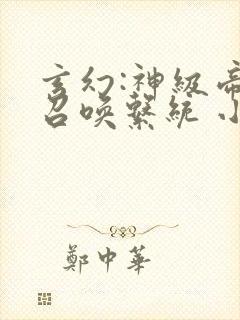 玄幻:神級帝
召喚繫統 小
鄭中華